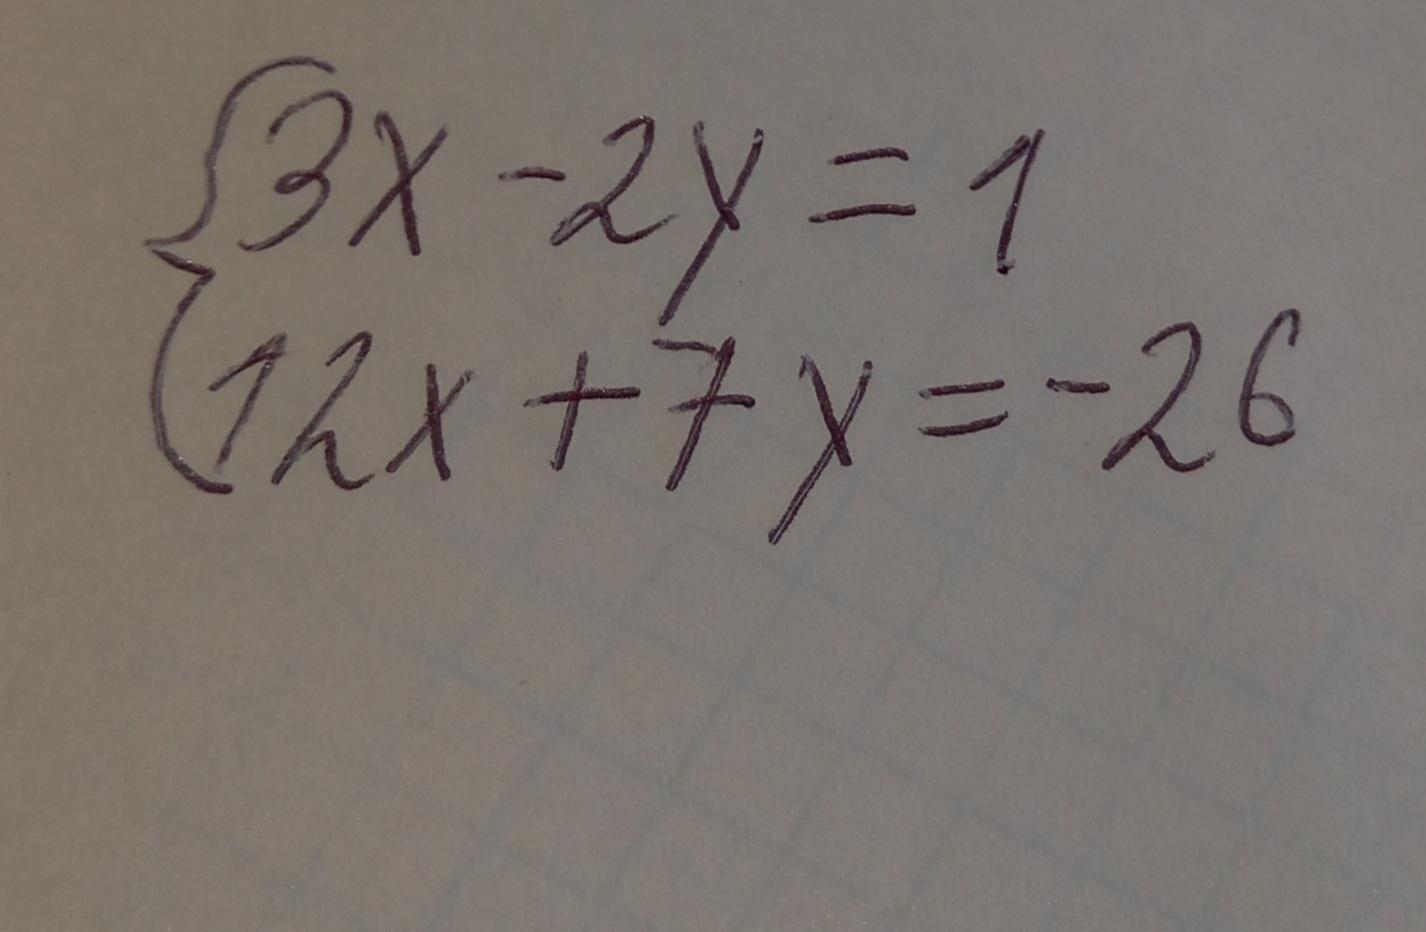 3x - 2y = 1
12x + 7y = -26